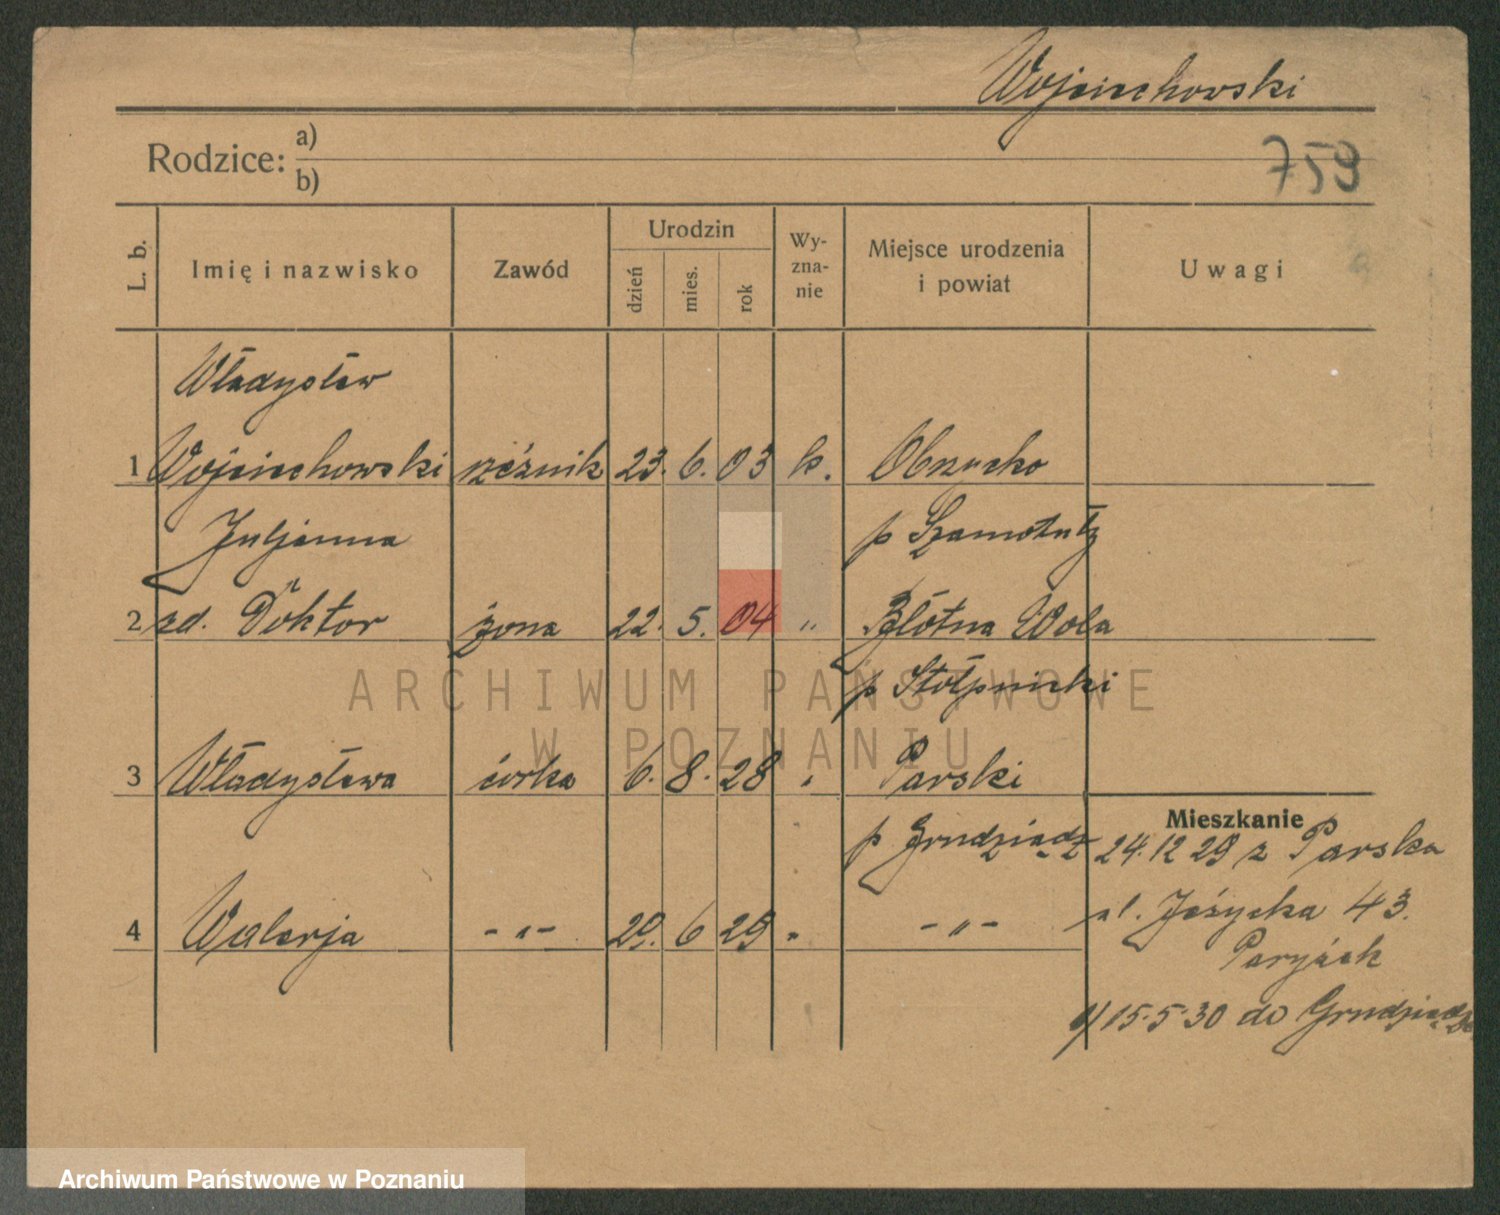 Wojciechowski
Rodzice: a)
b)
759
L. b. Imię i nazwisko Zawód Urodzin dzień mies. rok Wy-zna-nie Miejsce urodzenia i powiat Uwagi
Władysław
1 Wojciechowski rzeźnik 23. 6. 03 k. Obrzycko
Juljanna p Szamotuły
2 zd. Doktor żona 22. 5. 04 " Złotna Wola
p Stołpnicki
3 Władysława córka 6. 8. 28 " Parski
Mieszkanie
p Grudziądz 24.12 29 z Parska
4 Walerja -"- 29. 6 29 " -"- ul. Jeżycka 43.
15.5.30 do Grudziądza
ARCHIWUM PAŃSTWOWE
W POZNANIU
Archiwum Państwowe w Poznaniu